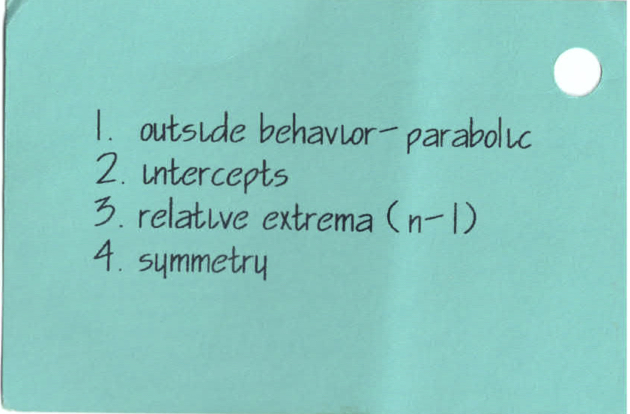 1. outside behavior- parabolic
2. intercepts
3. relative extrema (n-1)
4. symmetry